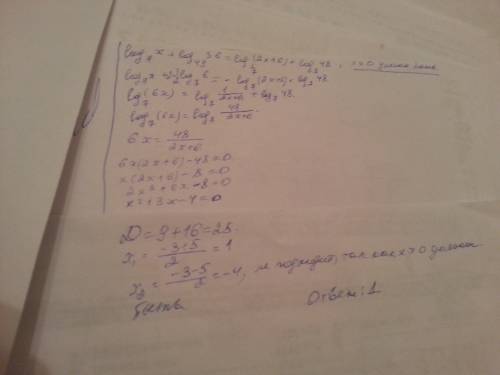 log₇ x + log₄₉ 36 = log_{1/7} (2x+6) + log₇ 48, x>0 должен быть
log₇ x + log₇ 6 = - log₇ (2x+6) + log₇ 48
log₇ (6x) = log₇ 1/(2x+6) + log₇ 48.
log₇ (6x) = log₇ 48/(2x+6).
6x = 48/(2x+6)
6x(2x+6)-48=0
x(2x+6)-8=0
2x²+6x-8=0
x²+3x-4=0
D=9+16=25.
x₁ = (-3+5)/2 = 1
x₂ = (-3-5)/2 = -4, не подходит, так как x>0 должен
быть
Ответ: 1